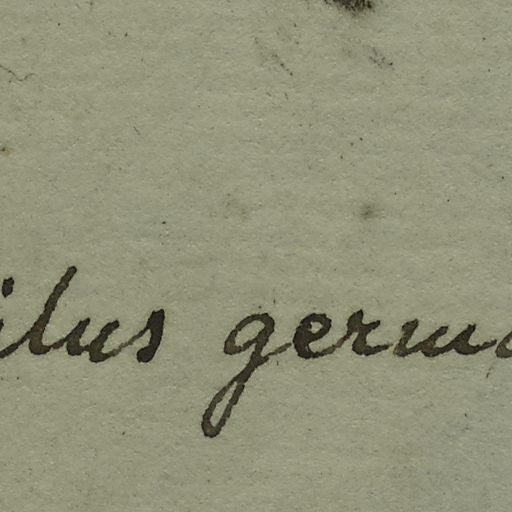 ilus germa